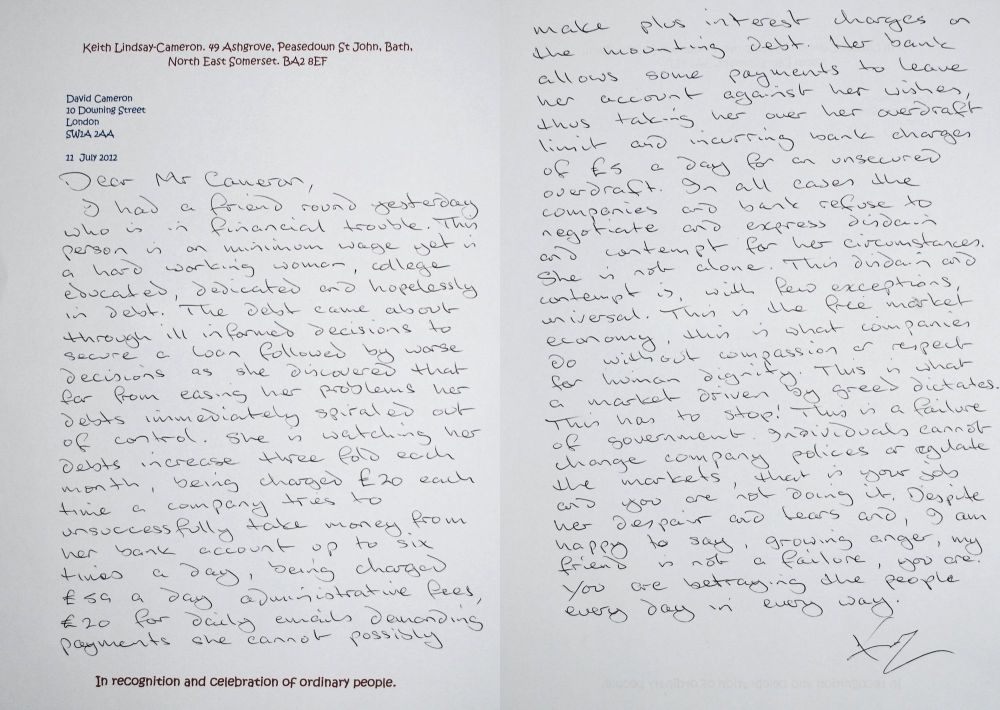 Keith Lindsay-Cameron. 49 Ashgrove, Peasedown St John, Bath,
North East Somerset. BA2 8EF
David Cameron
10 Downing Street
London
SW1A 2AA
11 July 2012
Dear Mr Cameron,
I had a friend round yesterday
who is in financial trouble. This
person is on minimum wage yet is
a hard working woman, college
educated, dedicated and hopelessly
in debt. The debt came about
through ill informed decisions to
secure a loan followed by worse
decisions as she discovered that
far from easing her problems her
debts immediately spiraled out
of control. She is watching her
debts increase three fold each
month, being charged £20 each
time a company tries to
unsuccessfully take money from
her bank account up to six
times a day, being charged
£59 a day administrative fees,
£20 for daily emails demanding
payments she cannot possibly
In recognition and celebration of ordinary people.
make plus interest charges on
the mounting debt. Her bank
allows some payments to leave
her account against her wishes,
thus taking her over her overdraft
limit and incurring bank charges
of £5 a day for an unsecured
overdraft. In all cases the
companies and bank refuse to
negotiate and express disdain
and contempt for her circumstances.
She is not alone. This disdain and
contempt is, with few exceptions,
universal. This is the free market
economy, this is what companies
do without compassion or respect
for human dignity. This is what
a market driven by greed dictates.
This has to stop! This is a failure
of government. Individuals cannot
change company polices or regulate
the markets, that is your job
and you are not doing it. Despite
her despair and tears and, I am
happy to say, growing anger, my
friend is not a failure, you are.
You are betraying the people
every day in every way.